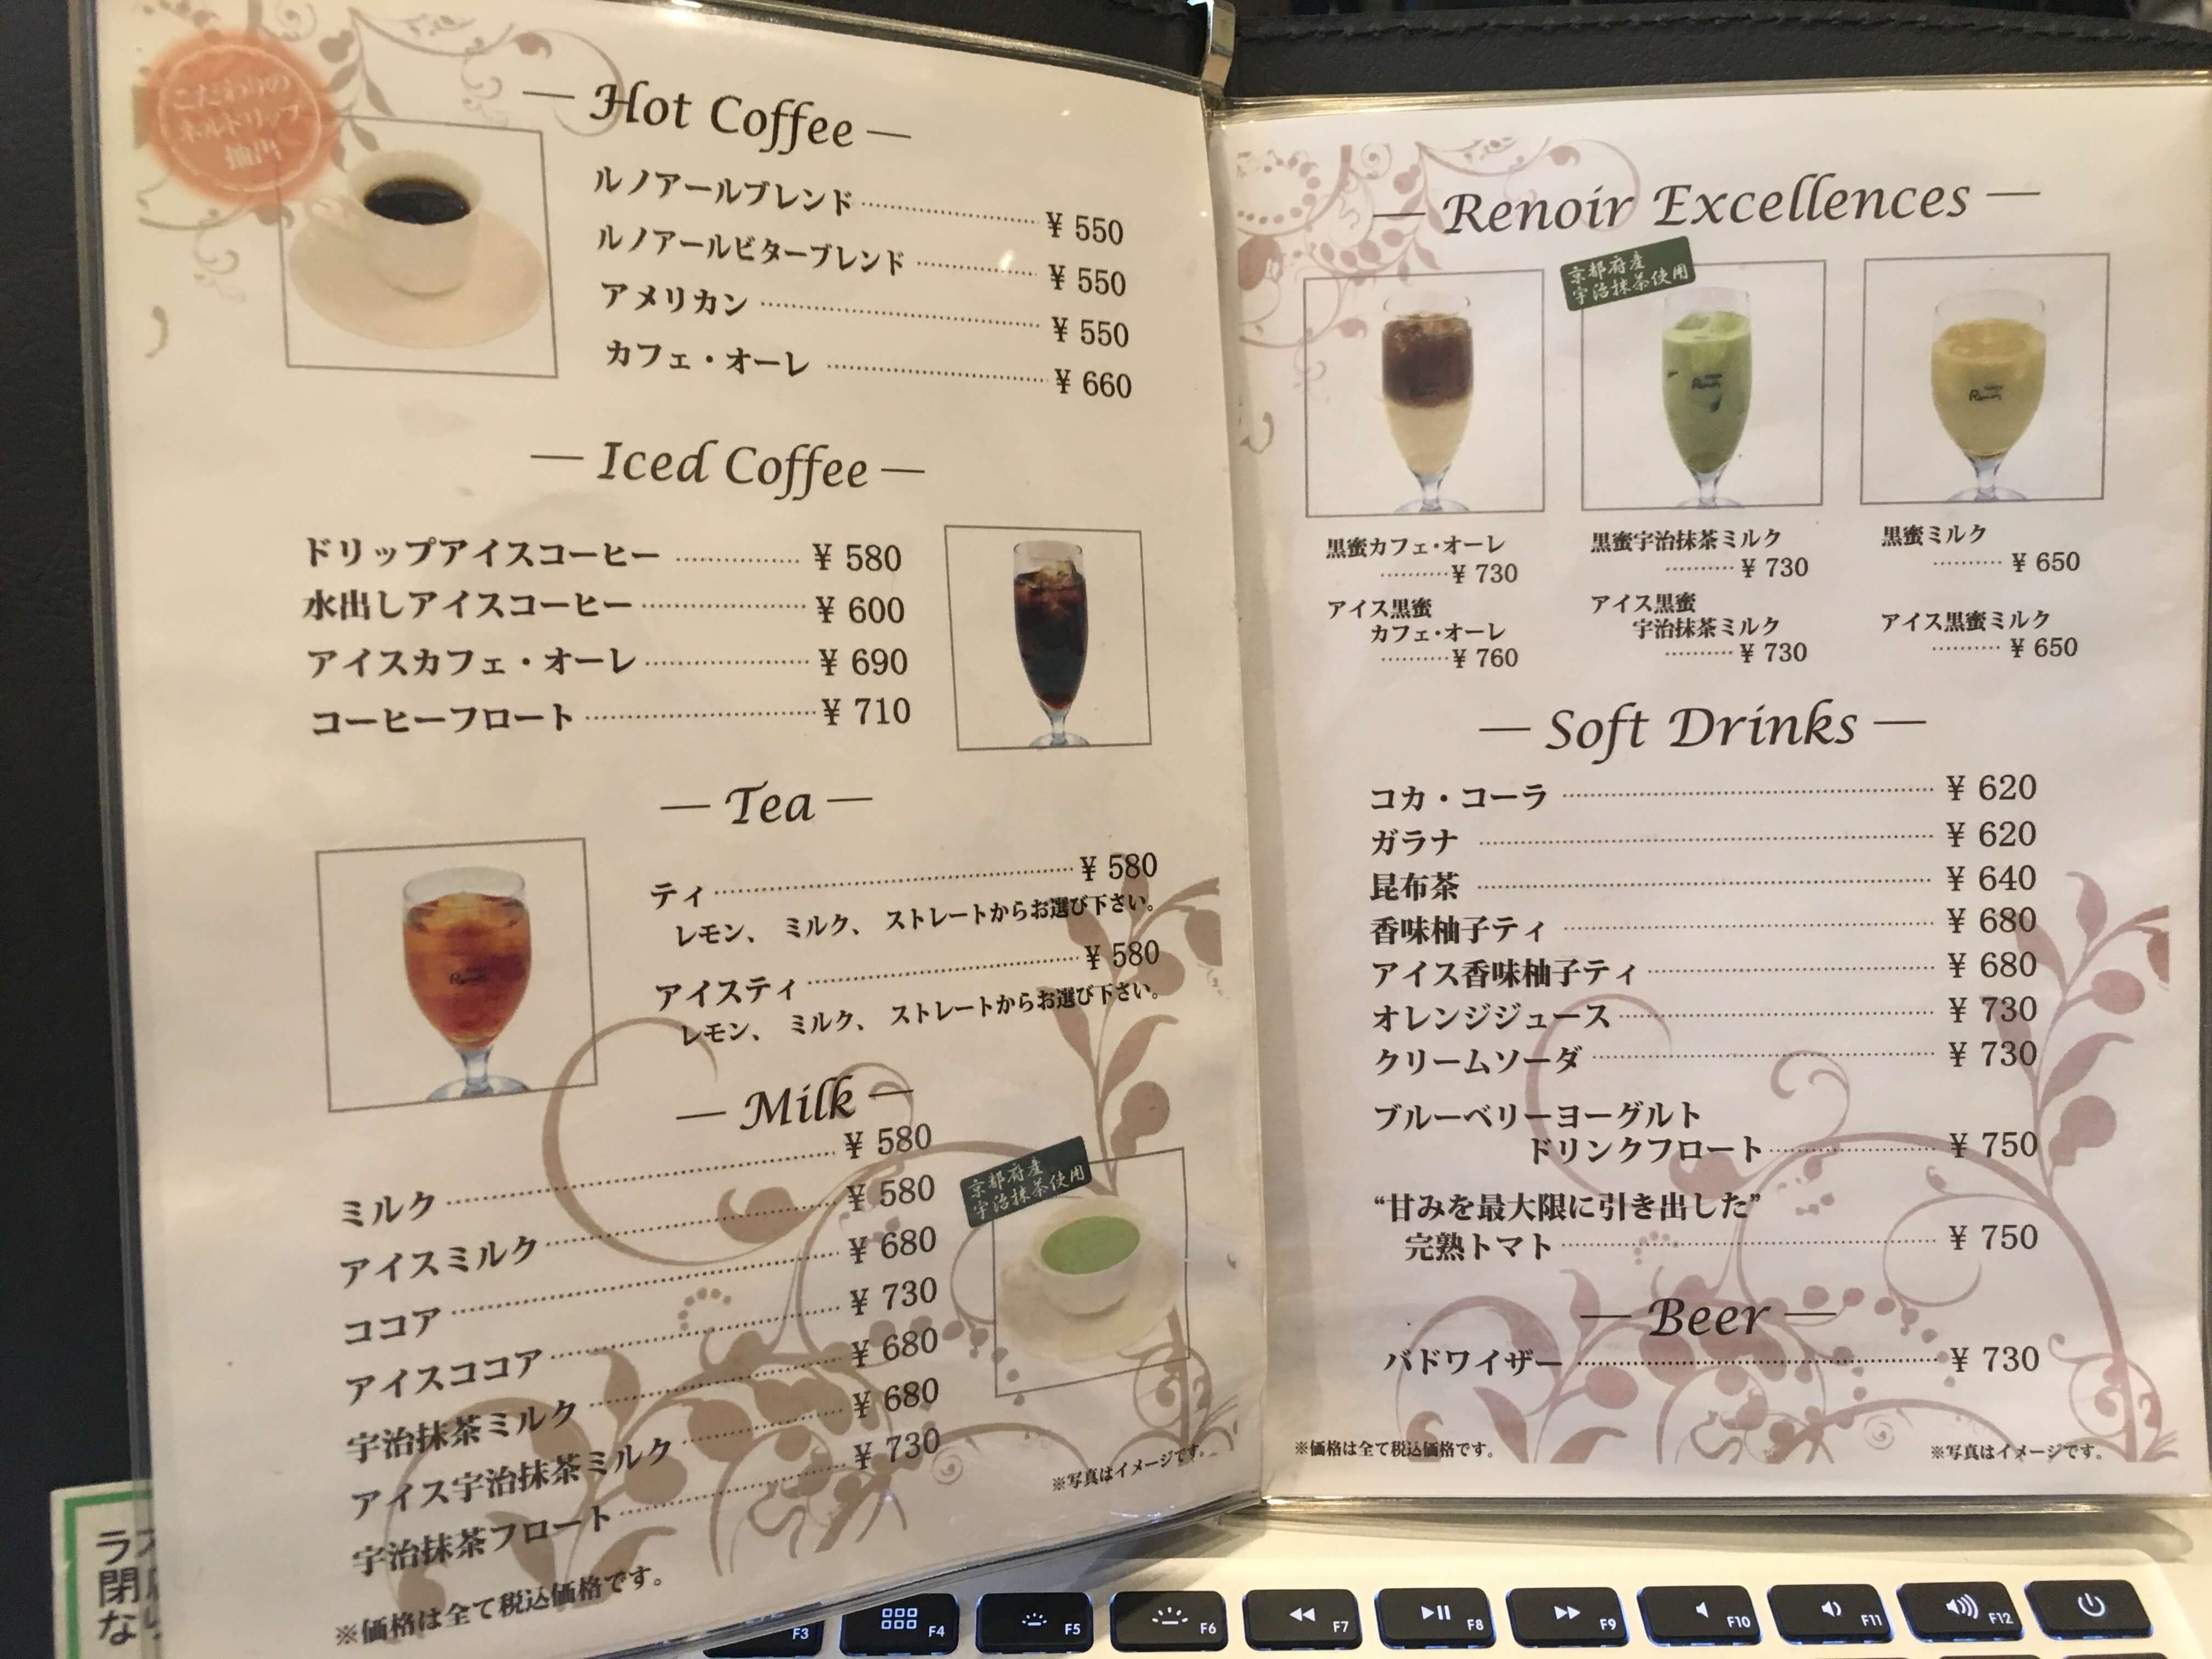 こだわりの
ネルドリップ
抽出
— Hot Coffee —
ルノアールブレンド ¥ 550
ルノアールビターブレンド ¥ 550
アメリカン ¥ 550
カフェ・オーレ ¥ 660
— Iced Coffee —
ドリップアイスコーヒー ¥ 580
水出しアイスコーヒー ¥ 600
アイスカフェ・オーレ ¥ 690
コーヒーフロート ¥ 710
— Tea —
ティ ¥ 580
レモン、ミルク、ストレートからお選び下さい。
アイスティ ¥ 580
レモン、ミルク、ストレートからお選び下さい。
Renoir
— Milk —
ミルク ¥ 580
アイスミルク ¥ 580
ココア ¥ 680
アイスココア ¥ 730
宇治抹茶ミルク ¥ 680
アイス宇治抹茶ミルク ¥ 680
宇治抹茶フロート ¥ 730
京都府産
宇治抹茶使用
※写真はイメージです。
※価格は全て税込価格です。
— Renoir Excellences —
京都府産
宇治抹茶使用
Renoir
Renoir
黒蜜カフェ・オーレ
¥ 730
アイス黒蜜
カフェ・オーレ
¥ 760
黒蜜宇治抹茶ミルク
¥ 730
アイス黒蜜
宇治抹茶ミルク
¥ 730
黒蜜ミルク
¥ 650
アイス黒蜜ミルク
¥ 650
— Soft Drinks —
コカ・コーラ ¥ 620
ガラナ ¥ 620
昆布茶 ¥ 640
香味柚子ティ ¥ 680
アイス香味柚子ティ ¥ 680
オレンジジュース ¥ 730
クリームソーダ ¥ 730
ブルーベリーヨーグルト
ドリンクフロート ¥ 750
“甘みを最大限に引き出した”
完熟トマト ¥ 750
— Beer —
バドワイザー ¥ 730
※価格は全て税込価格です。
※写真はイメージです。
ラ
閉
な
F3 F4 F5 F6 F7 F8 F9 F10 F11 F12